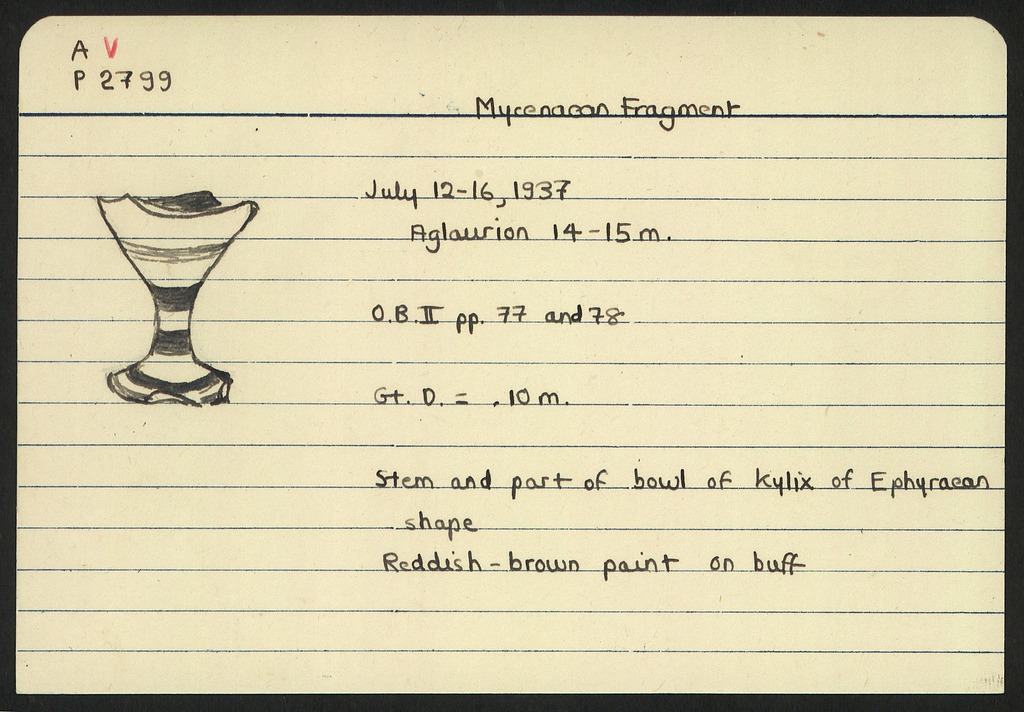 A V
P 2799
Mycenaean Fragment
July 12-16, 1937
Aglaurion 14-15 m.
O.B. II pp. 77 and 78
Gt. D. = .10 m.
Stem and part of bowl of kylix of Ephyraean
shape
Reddish-brown paint on buff